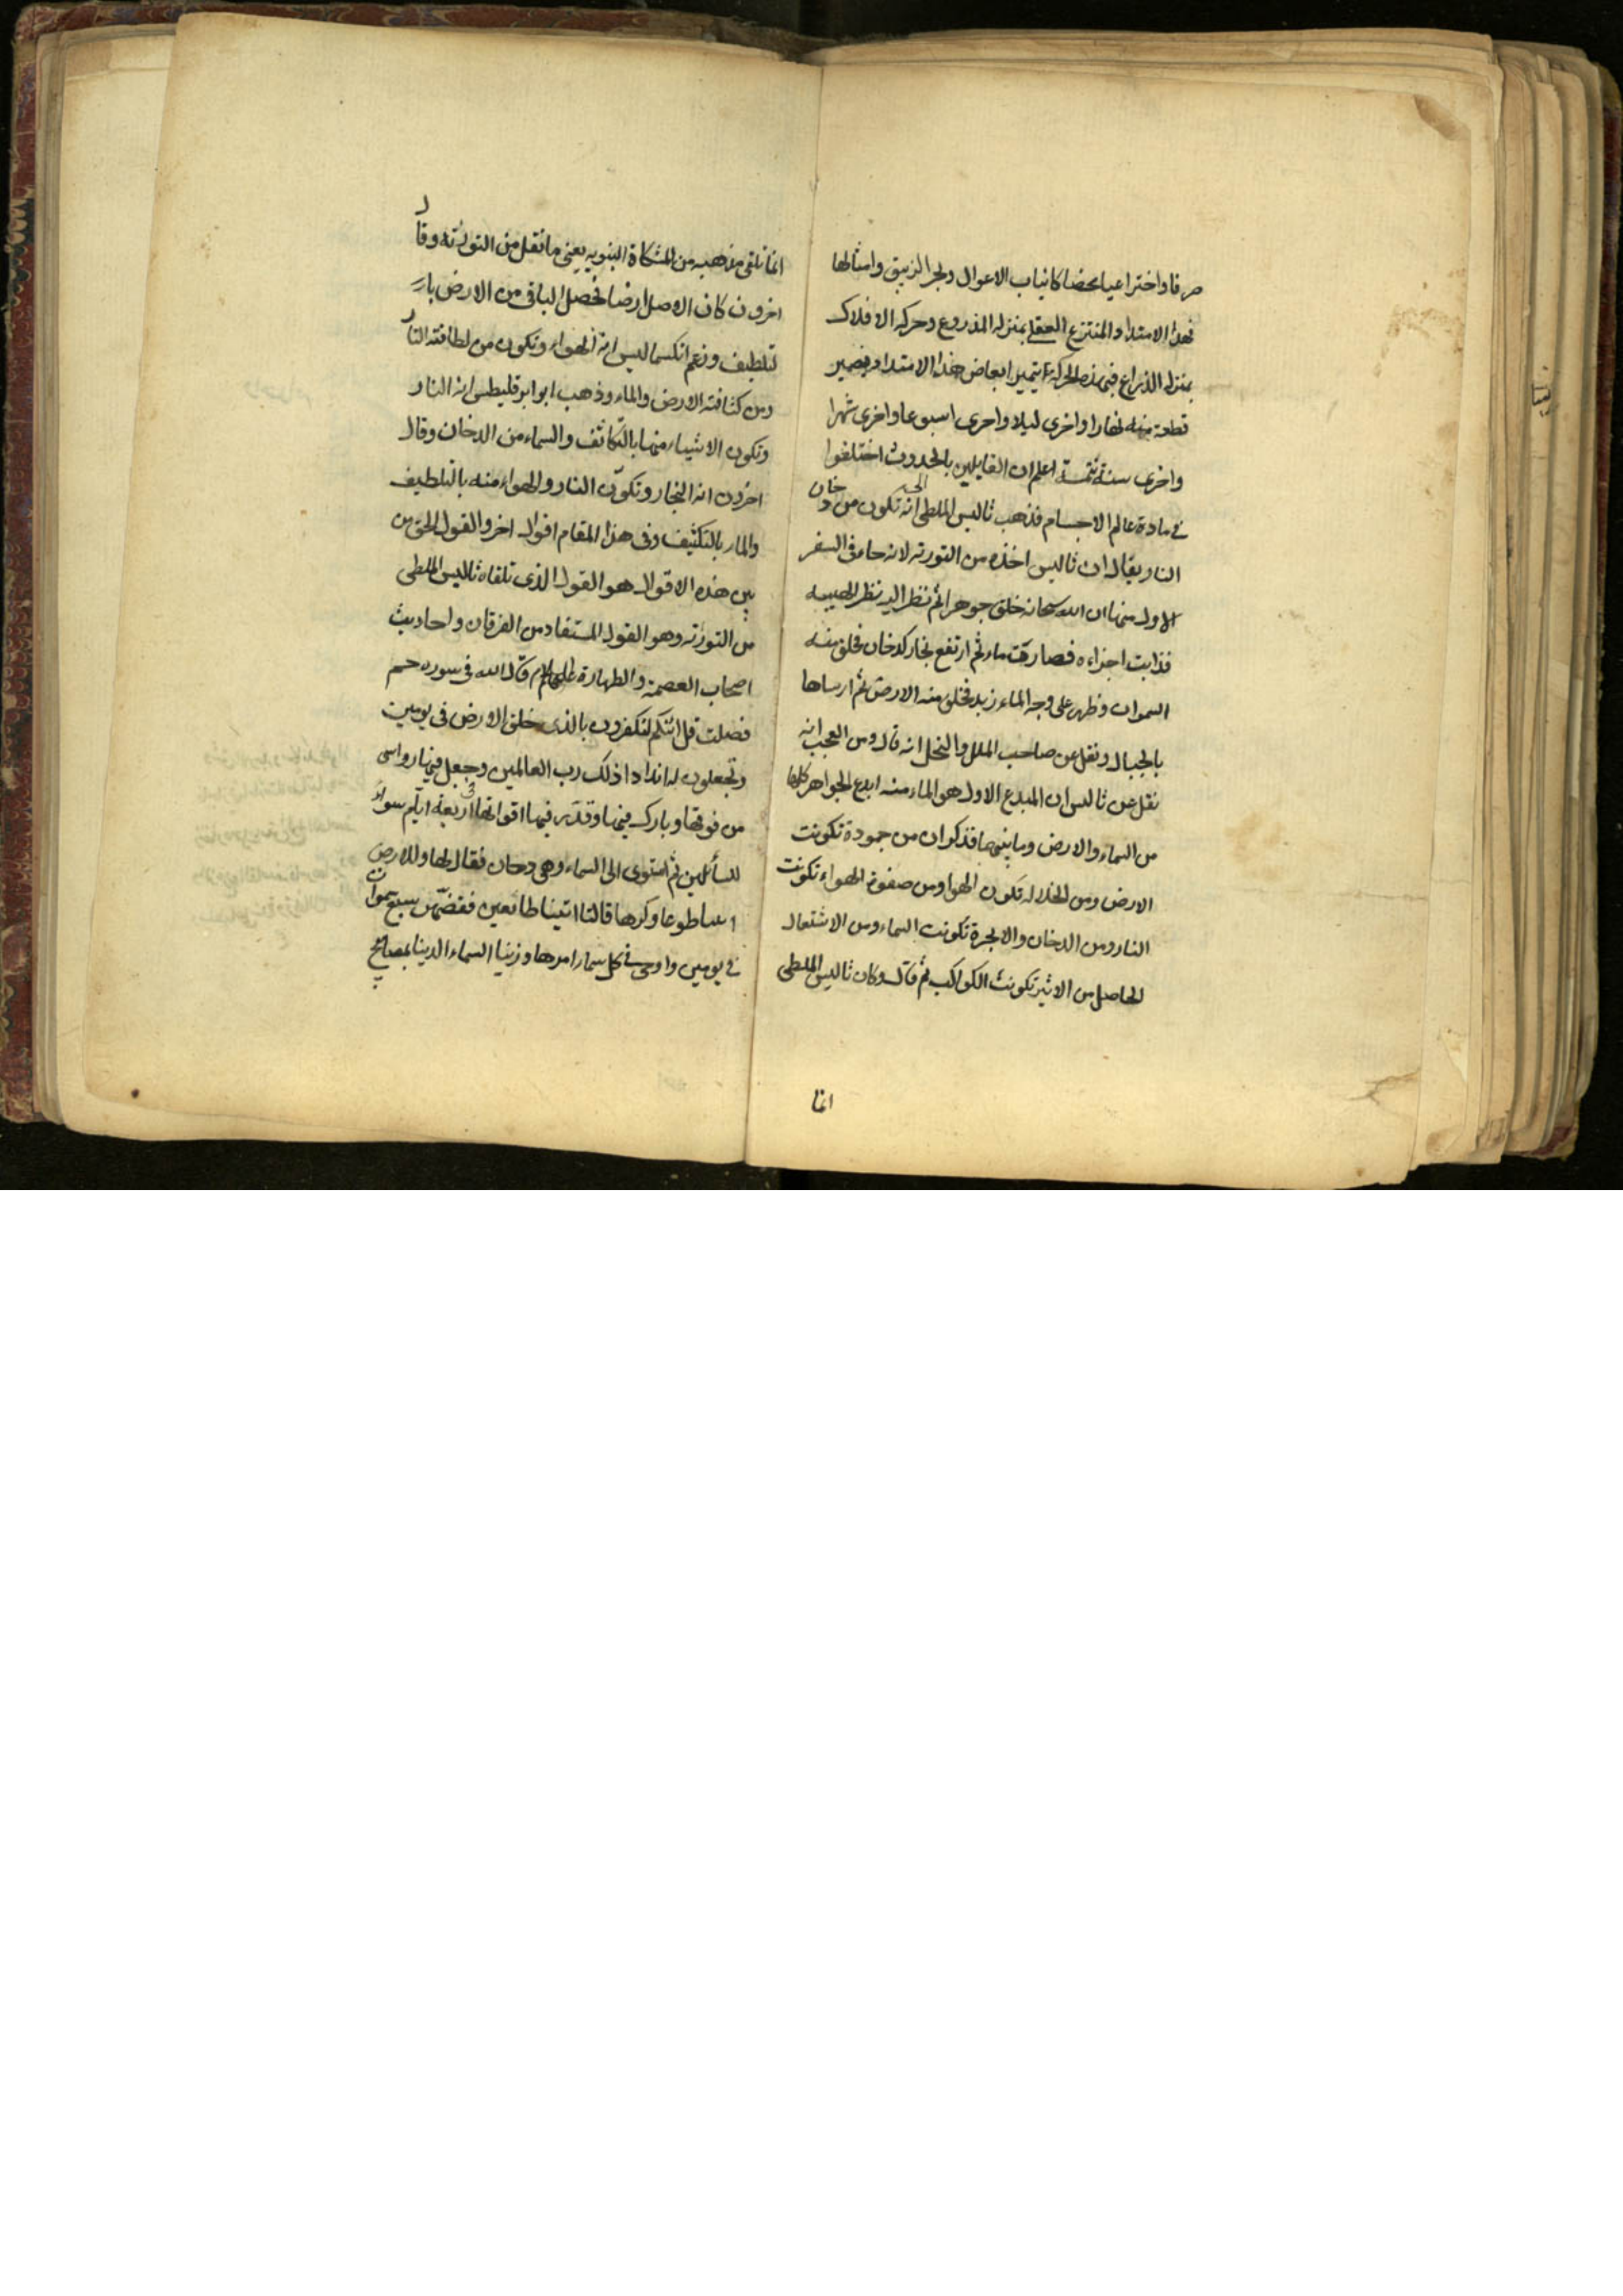 صرفا واختراعيا محضا كانياب الاعوال وبحر الزيبق وامثالها
فهذا الامتداد المنتزع العقلى بمنزله المذروع وحركه الافلاك
بمنزله الذراع فبهذه الحركة يتميز ابعاض هذا الامتداد ويصير
قطعة منه نهارا واخرى ليلا واخرى اسبوعا واخرى شهرا
واخرى سنة تتمة اعلم ان القايلين بالحدوث اختلفوا
فى مادة عالم الاجسام فذهب ثاليس الملطى الى انه تكون من دخان
النار يقال ان ثاليس اخذه من التورته لانه جاء فى السفر
الاول منها ان الله سبحانه خلق جوهرا ثم نظر اليه نظر الهيبه
فذابت اجزاءه فصارت ماء ثم ارتفع بخار كدخان فخلق منه
السموات وظهر على وجه الماء زبد فخلق منه الارض ثم ارساها
بالجبال ونقل عن صاحب الملل والنحل انه قال ومن العجب انه
نقل عن ثاليس ان المبدع الاول هو الماء منه ابدع الجواهر كلها
من السماء والارض وما بينهما فذكر ان من جمودة تكونت
الارض ومن انحلاله تكون الهوا ومن صفوة الهواء تكونت
النار ومن الدخان والابخرة تكونت السماء ومن الاشتعال
الحاصل من الاثير تكونت الكواكب ثم قال وكان ثاليس الملطى
انما
انما تلقى مذهبه من المشكاة النبويه يعنى ما نقل من التورته وقال
اخرون كان الاصل ارضا فحصل الباقى من الارض بال
تلطيف وزعم انكسماليس انه الهواء وتكون من لطافته النار
ومن كثافته الارض والماء وذهب ابو ابرقليطس انه النار
وتكون الاشياء منها بالتكاثف والسماء من الدخان وقال
اخرون انه البخار وتكون النار والهواء منه بالتلطيف
والماء بالتكثيف وفى هذا المقام اقوال اخر والقول الحق من
بين هذه الاقوال هو القول الذى تلقاه ثاليس الملطى
من التورته وهو القول المستفاد من الفرقان واحاديث
اصحاب العصمة والطهارة عليهم السلام قال الله فى سوره حم
فصلت قل ائنكم لتكفرون بالذى خلق الارض فى يومين
وتجعلون له اندادا ذلك رب العالمين وجعل فيها رواسى
من فوقها وبارك فيها وقدر فيها اقواتها فى اربعة ايام سواء
للسائلين ثم استوى الى السماء وهى دخان فقال لها وللارض
ائتيا طوعا وكرها قالتا اتينا طائعين فقضهن سبع سموات
فى يومين واوحى فى كل سماء امرها وزينا السماء الدينا بمصابيح